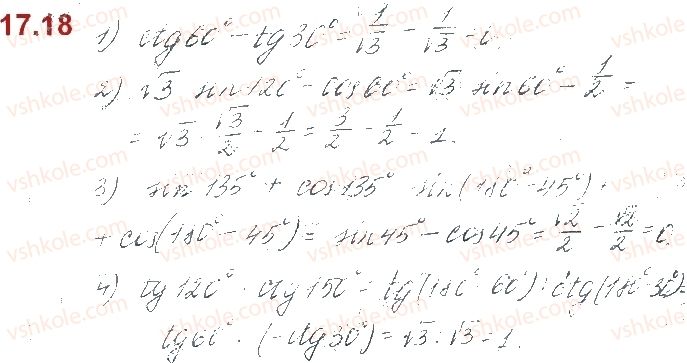 17.18
1) ctg60° - tg30° = 1/√3 - 1/√3 = 0.
2) √3 sin120° - cos60° = √3 sin60° - 1/2 =
= √3 · √3/2 - 1/2 = 3/2 - 1/2 = 1.
3) sin135° + cos135° sin(180° - 45°) +
+ cos(180° - 45°) = sin45° - cos45° = √2/2 - √2/2 = 0
4) tg120° · ctg150° = tg(180° 60°) : ctg(180° 30°) =
tg60° · (-ctg30°) = √3 : √3 = 1.
vshkole.com